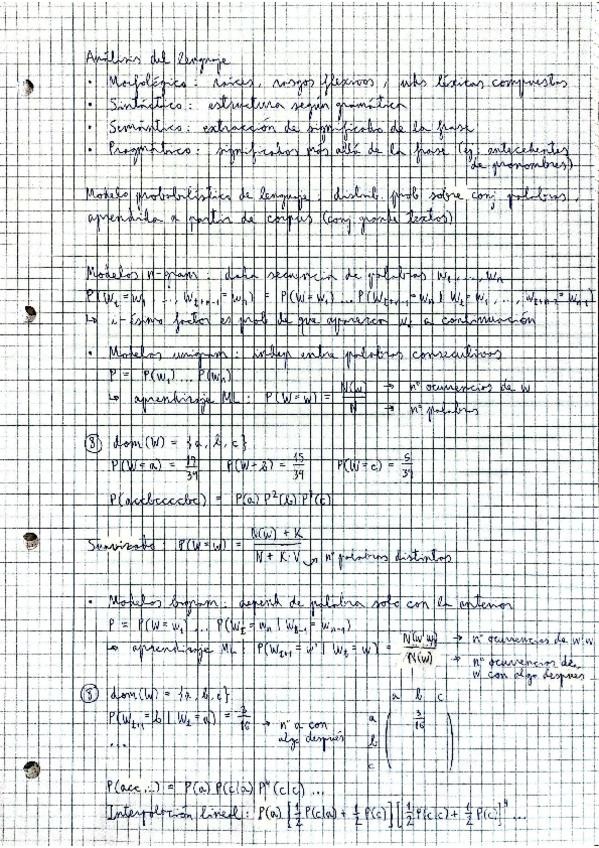 Análisis del lenguaje
• Morfológico: raíces, rasgos flexivos, uds léxicas compuestas
• Sintáctico: estructura según gramática
• Semántico: extracción de significado de la frase
• Pragmático: significados más allá de la frase (ej: antecedentes
de pronombres)
Modelo probabilístico de lenguaje: distrib. prob sobre conj palabras,
aprendida a partir de corpus (conj grande textos)
Modelos n-gram: dada secuencia de palabras w₁, ..., wₙ
P(W_t = w₁ ..., W_{t+n-1} = wₙ) = P(W = w₁) ... P(W_{t+n-1} = wₙ | W_t = w₁, ..., W_{t+n-2} = w_{n-1})
↳ i-ésimo factor es prob de que aparezca wᵢ a continuación
• Modelos unigram: indep entre palabras consecutivas
P = P(w₁) ... P(wₙ)
↳ aprendizaje ML: P(W = w) = N(w) / N → nº ocurrencias de w
→ nº palabras
⑧ dom(W) = {a, b, c}
P(W = a) = 17/37 P(W = b) = 15/37 P(W = c) = 5/37
P(accbccccbc) = P(a) P²(b) P⁷(c)
Suavizado: P(W = w) = (N(w) + K) / (N + K·V) → nº palabras distintas
• Modelos bigram: depend de palabra solo con la anterior
P = P(W = w₁) ... P(W_t = wₙ | W_{t-1} = w_{n-1})
↳ aprendizaje ML: P(W_{t+1} = w' | W_t = w) = N(w'w) / N(w) → nº ocurrencias de w'w
→ nº ocurrencias de
w con algo después
⑧ dom(W) = {a, b, c} a b c
P(W_{t+1} = b | W_t = a) = 3/16 → nº a con
algo después
a 3/16
b
c
...
P(acc...) = P(a) P(c|a) P⁴(c|c) ...
Interpolación lineal: P(a) [1/2 P(c|a) + 1/2 P(c)] [1/2 P(c|c) + 1/2 P(c)]⁴ ...